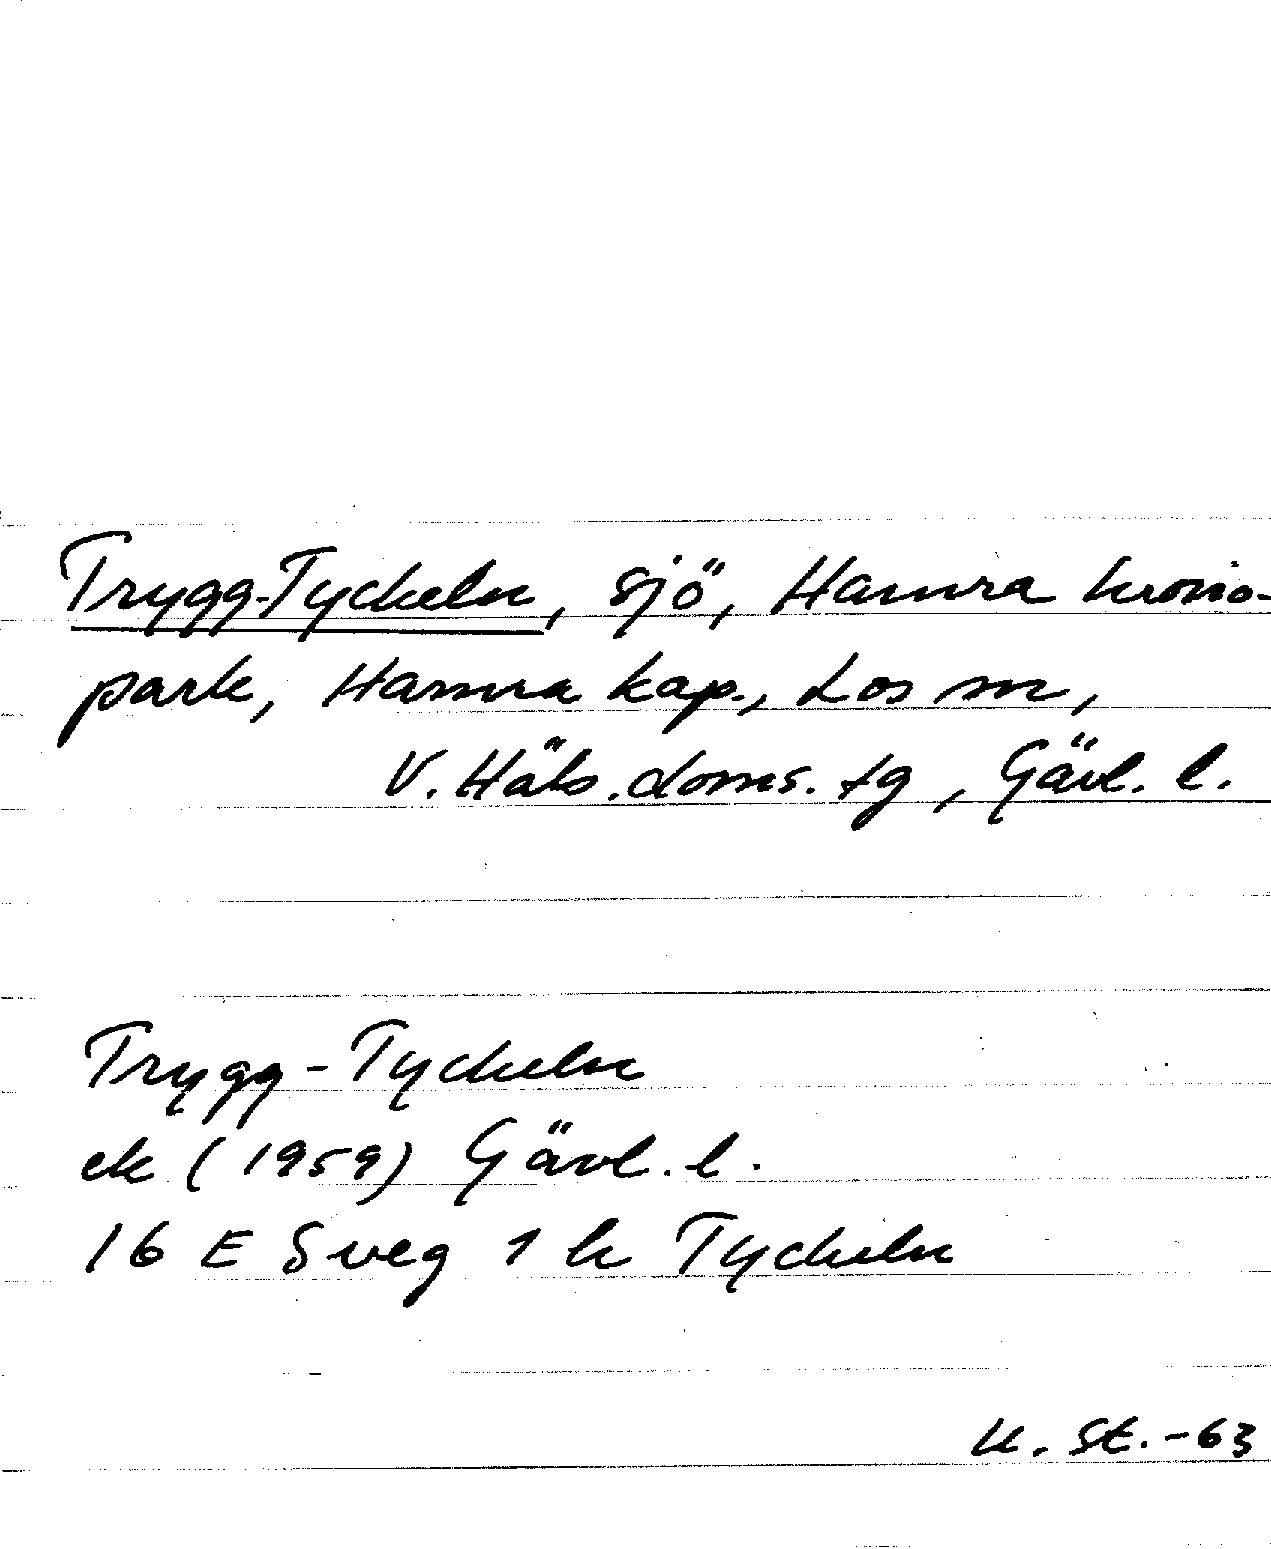 Trygg-Tyckeln, sjö, Hamra krono-
park, Hamra kap., Los sn,
V. Häls. doms. tg, Gävl. l.
Trygg-Tyckeln
ek (1959) Gävl. l.
16 E Sveg 1 h Tyckeln
K. St. -63